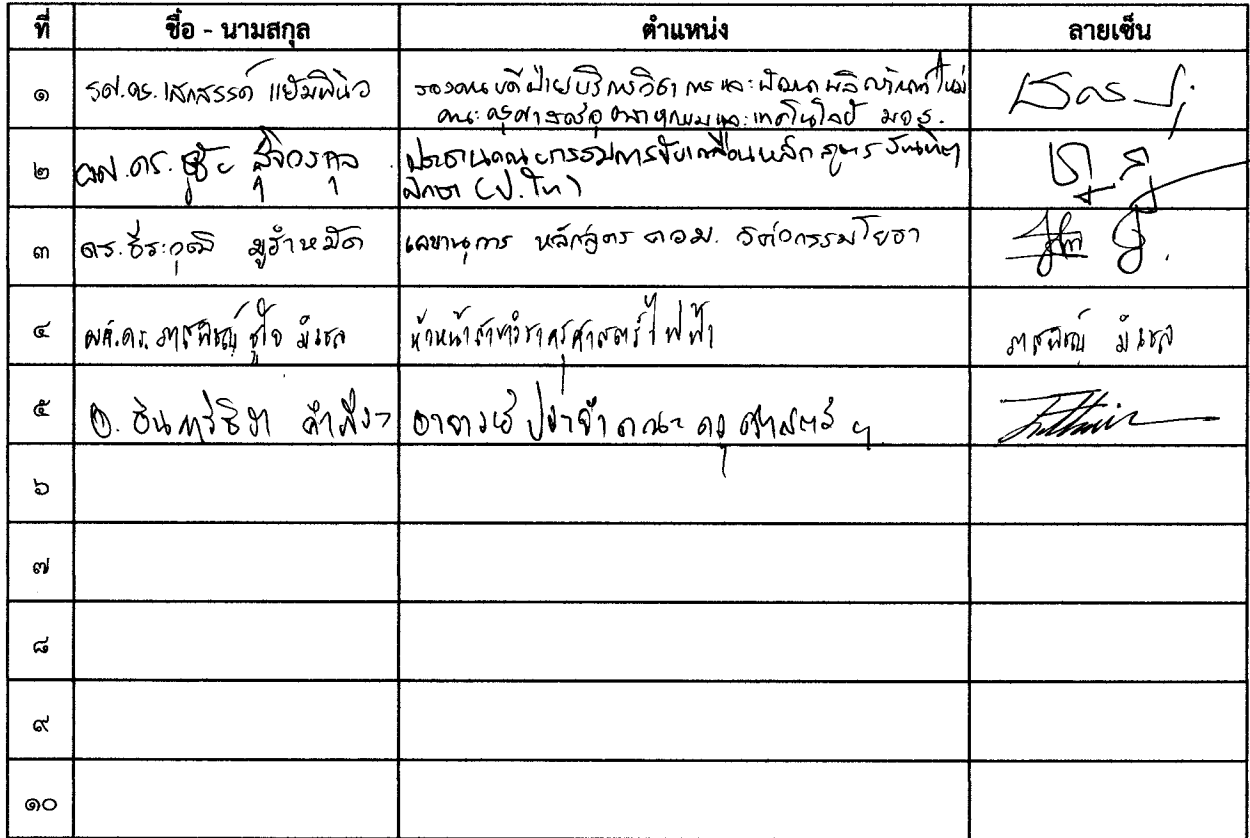 ที่ ชื่อ - นามสกุล ตำแหน่ง ลายเซ็น
๑ รศ.ดร. เสกสรรค์ แย้มพินิจ รองคณบดีฝ่ายบริการวิชาการและพัฒนาผลิตภัณฑ์ใหม่
คณะครุศาสตร์อุตสาหกรรมและเทคโนโลยี มจธ.
๒ ผศ.ดร. ประธานคณะกรรมการขับเคลื่อนหลักสูตร บัณฑิต
ศึกษา (ป.โท)
๓ ดร. ธีระวุฒิ มูฮำหมัด เลขานุการ หลักสูตร คอม. วิศวกรรมโยธา
๔ ผศ.ดร. ชูใจ หัวหน้าสาขาวิชาครุศาสตร์ไฟฟ้า
๕ อ. อาจารย์ประจำคณะครุศาสตร์ฯ
๖
๗
๘
๙
๑๐